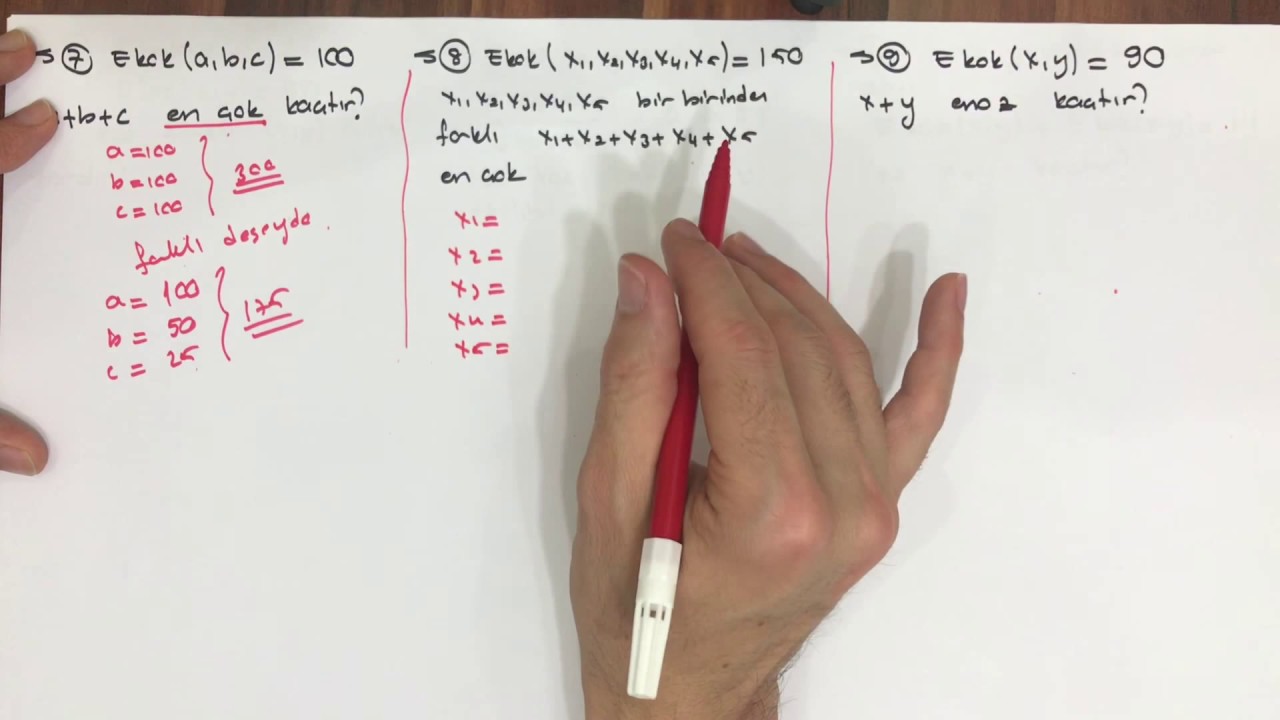 → ⑦ Ekok(a,b,c) = 100
+b+c en çok kaçtır?
a=100
b=100
c=100
300
farklı deseydi.
a= 100
b= 50
c= 25
175
→ ⑧ Ekok(x₁,x₂,x₃,x₄,x₅)=150
x₁,x₂,x₃,x₄,x₅ bir birinden
farklı x₁+x₂+x₃+x₄+x₅
en çok
x₁=
x₂=
x₃=
x₄=
x₅=
→ ⑨ Ekok(x,y) = 90
x+y en az kaçtır?